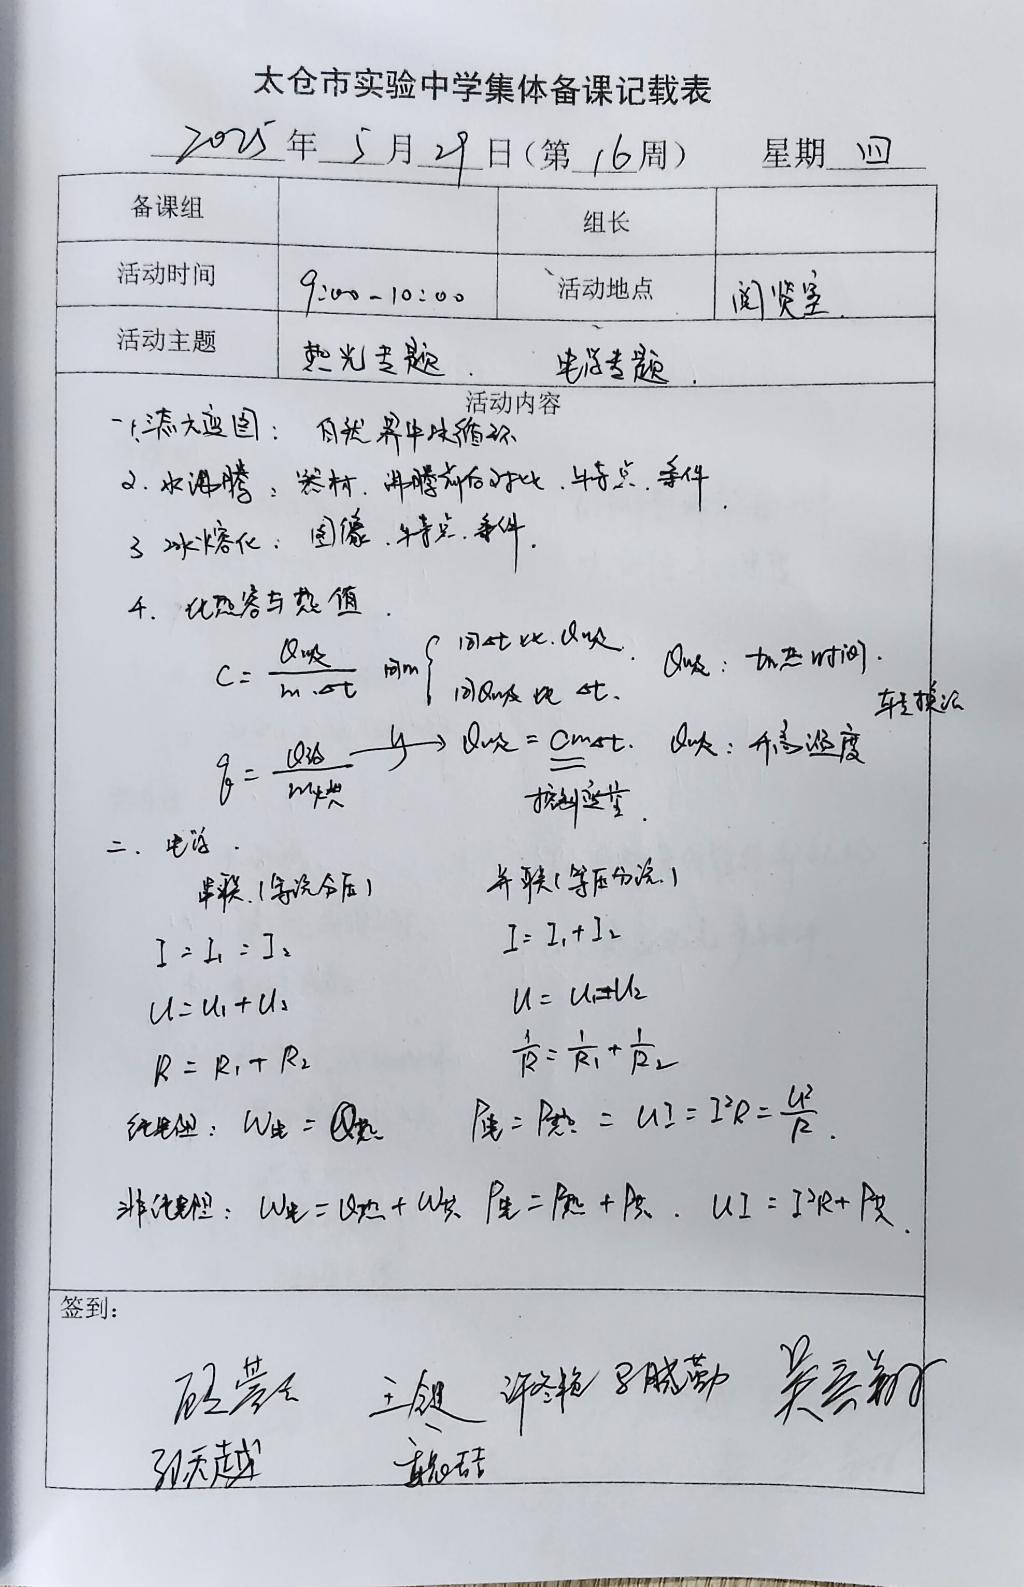 太仓市实验中学集体备课记载表
2025年 5月 29日(第 16周) 星期 四
备课组 组长
活动时间 9:00-10:00 活动地点 阅览室.
活动主题 热光专题. 电学专题.
活动内容
一、1. 物态变图: 自然界中水循环
2. 水沸腾: 器材. 沸腾前后对比. 特点. 条件.
3 冰熔化: 图像. 特点. 条件.
4. 比热容与热值.
C = Q吸/m·Δt 同m { 同Δt比. Q吸. Q吸: 加热时间.
同Q吸比 Δt. 转换法
q = Q放/m燃 → Q吸 = cmΔt. Q吸: 升高温度
控制变量.
二. 电学.
串联.(等流分压) 并联(等压分流.)
I = I₁ = I₂ I = I₁ + I₂
U = U₁ + U₂ U = U₁ = U₂
R = R₁ + R₂ 1/R = 1/R₁ + 1/R₂
纯电阻: W电 = Q热 P电 = P热 = UI = I²R = U²/R.
非纯电阻: W电 = Q热 + W其 P电 = P热 + P其. UI = I²R + P其.
签到: